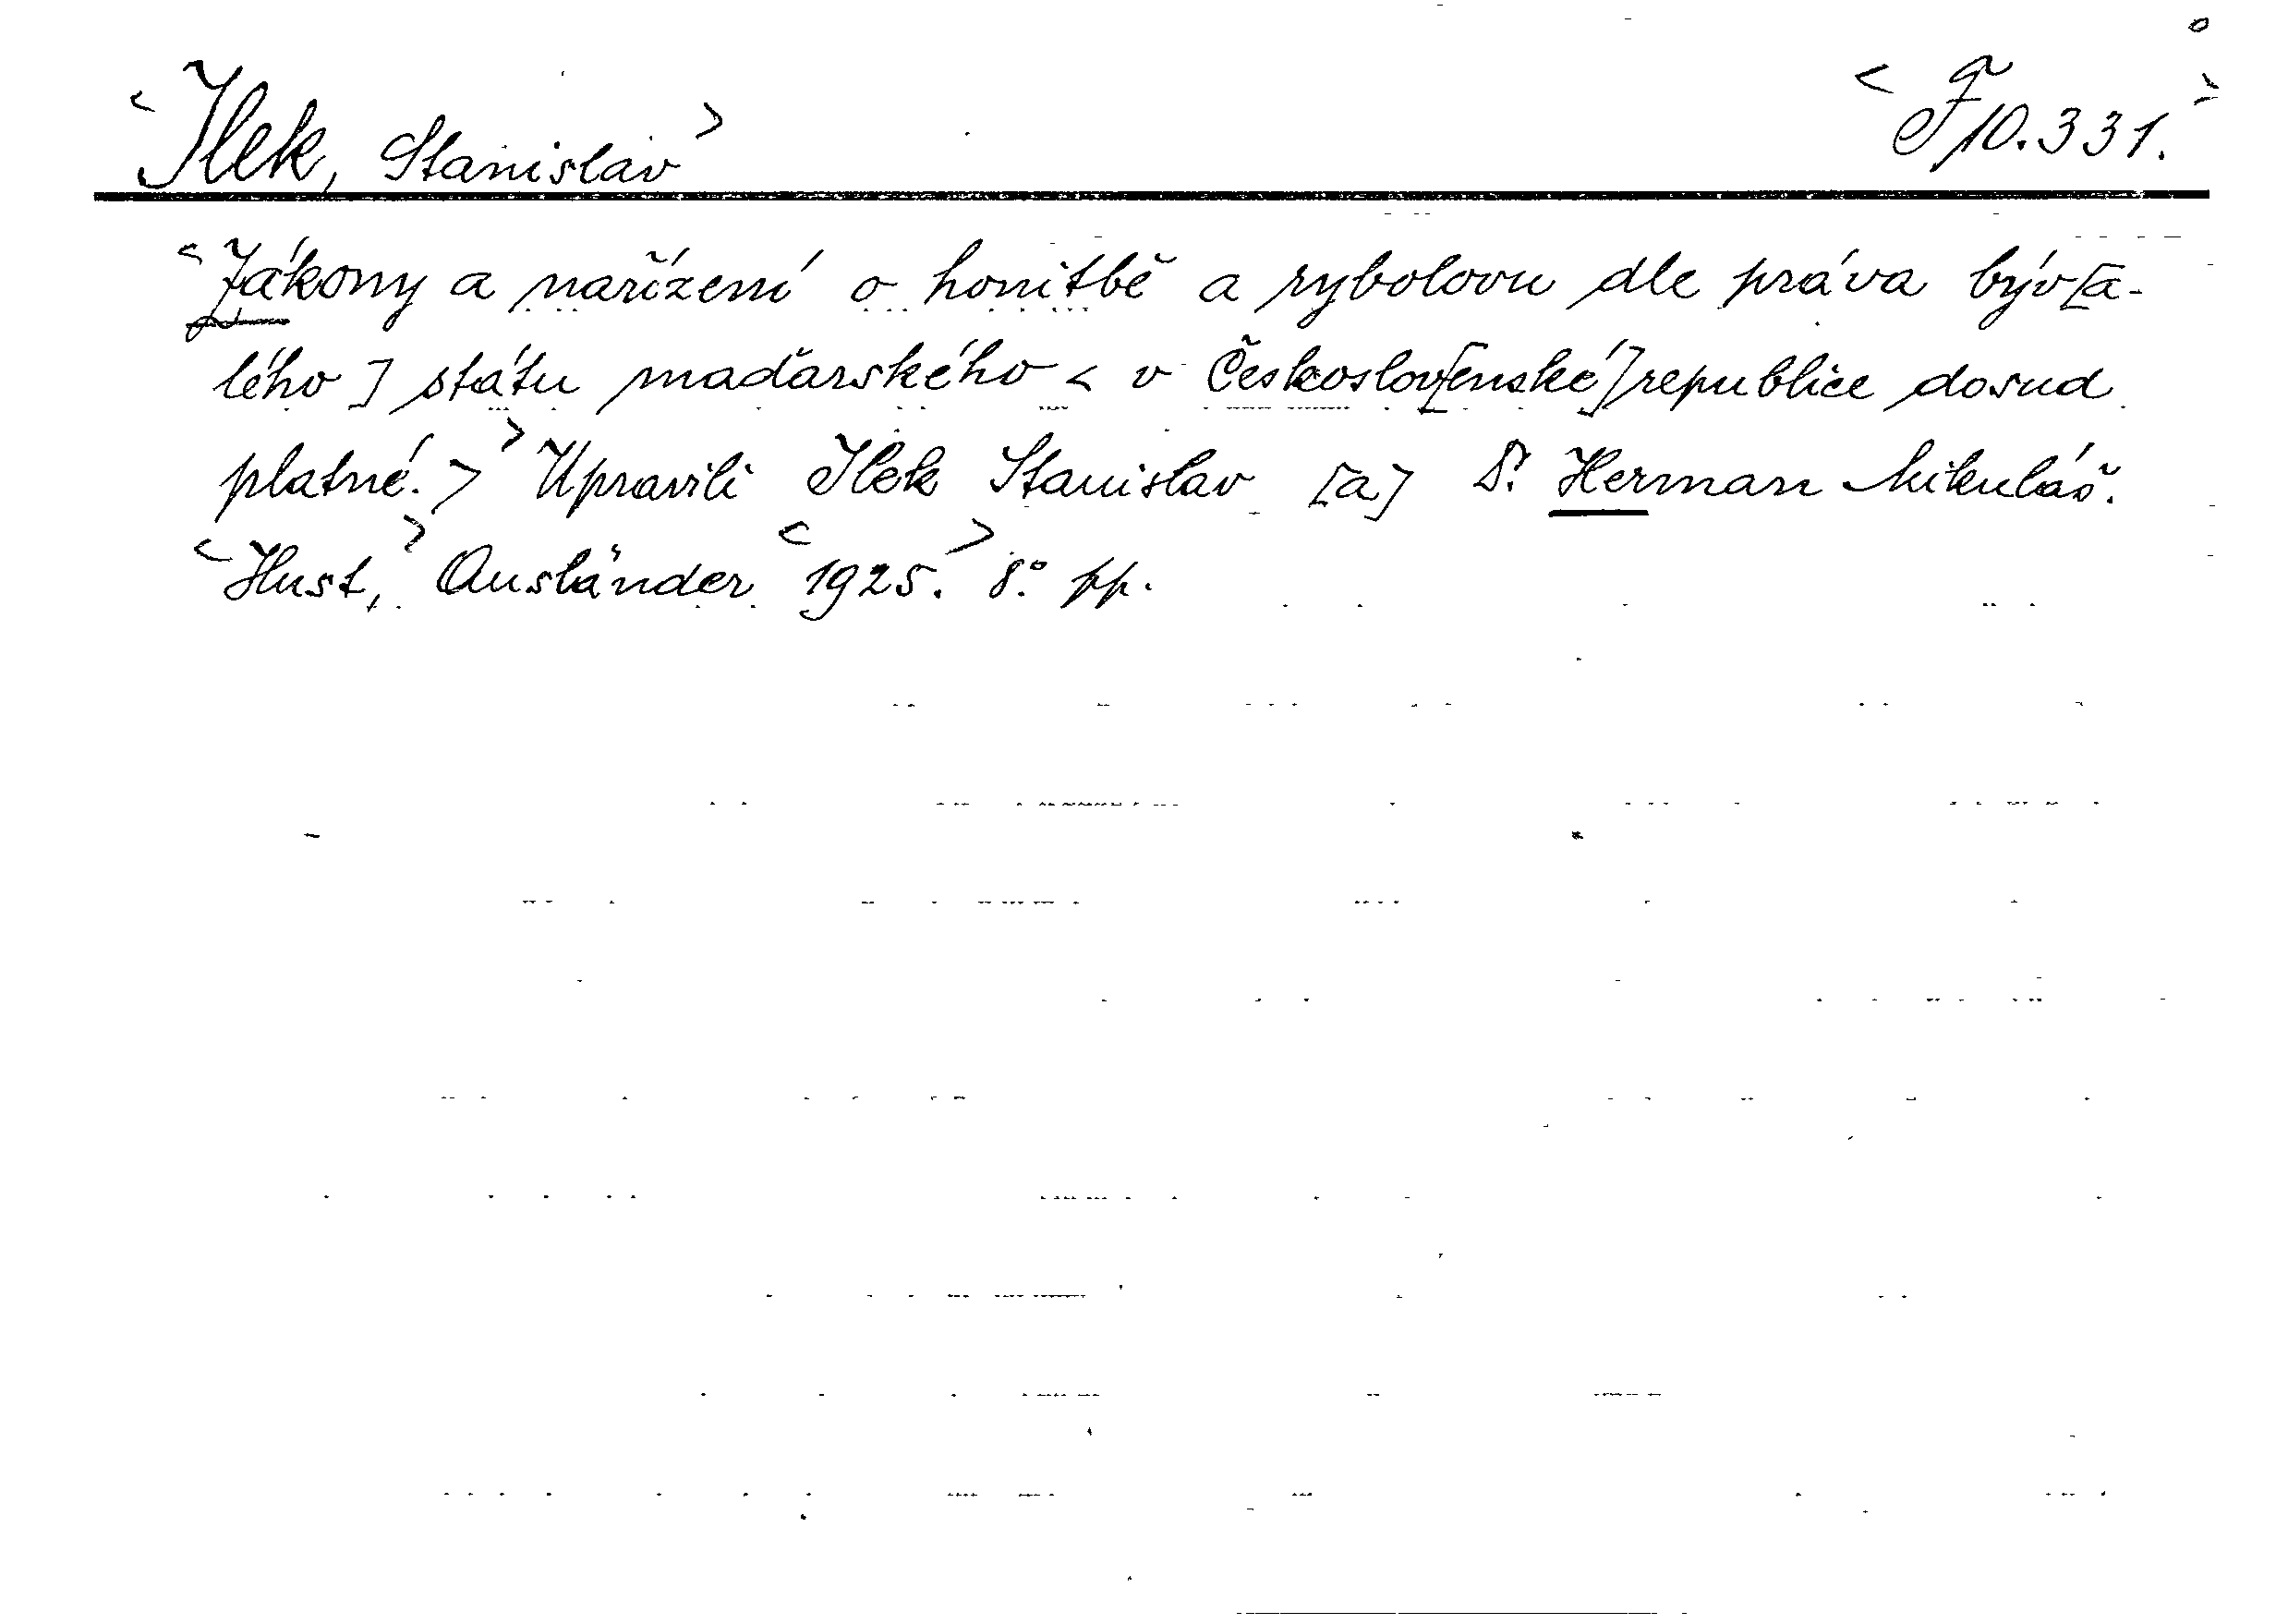 <Ilek, Stanislav> <F 10.331.>
<Zákony a nařízení o honitbě a rybolovu dle práva býv[a-
lého] státu maďarského < v Českoslov[enské] republice dosud
platné. >> Upravili Ilek Stanislav [a] Dr. Herman Mikuláš.
<Hust,> Ausländer <1925.> 8° pp.